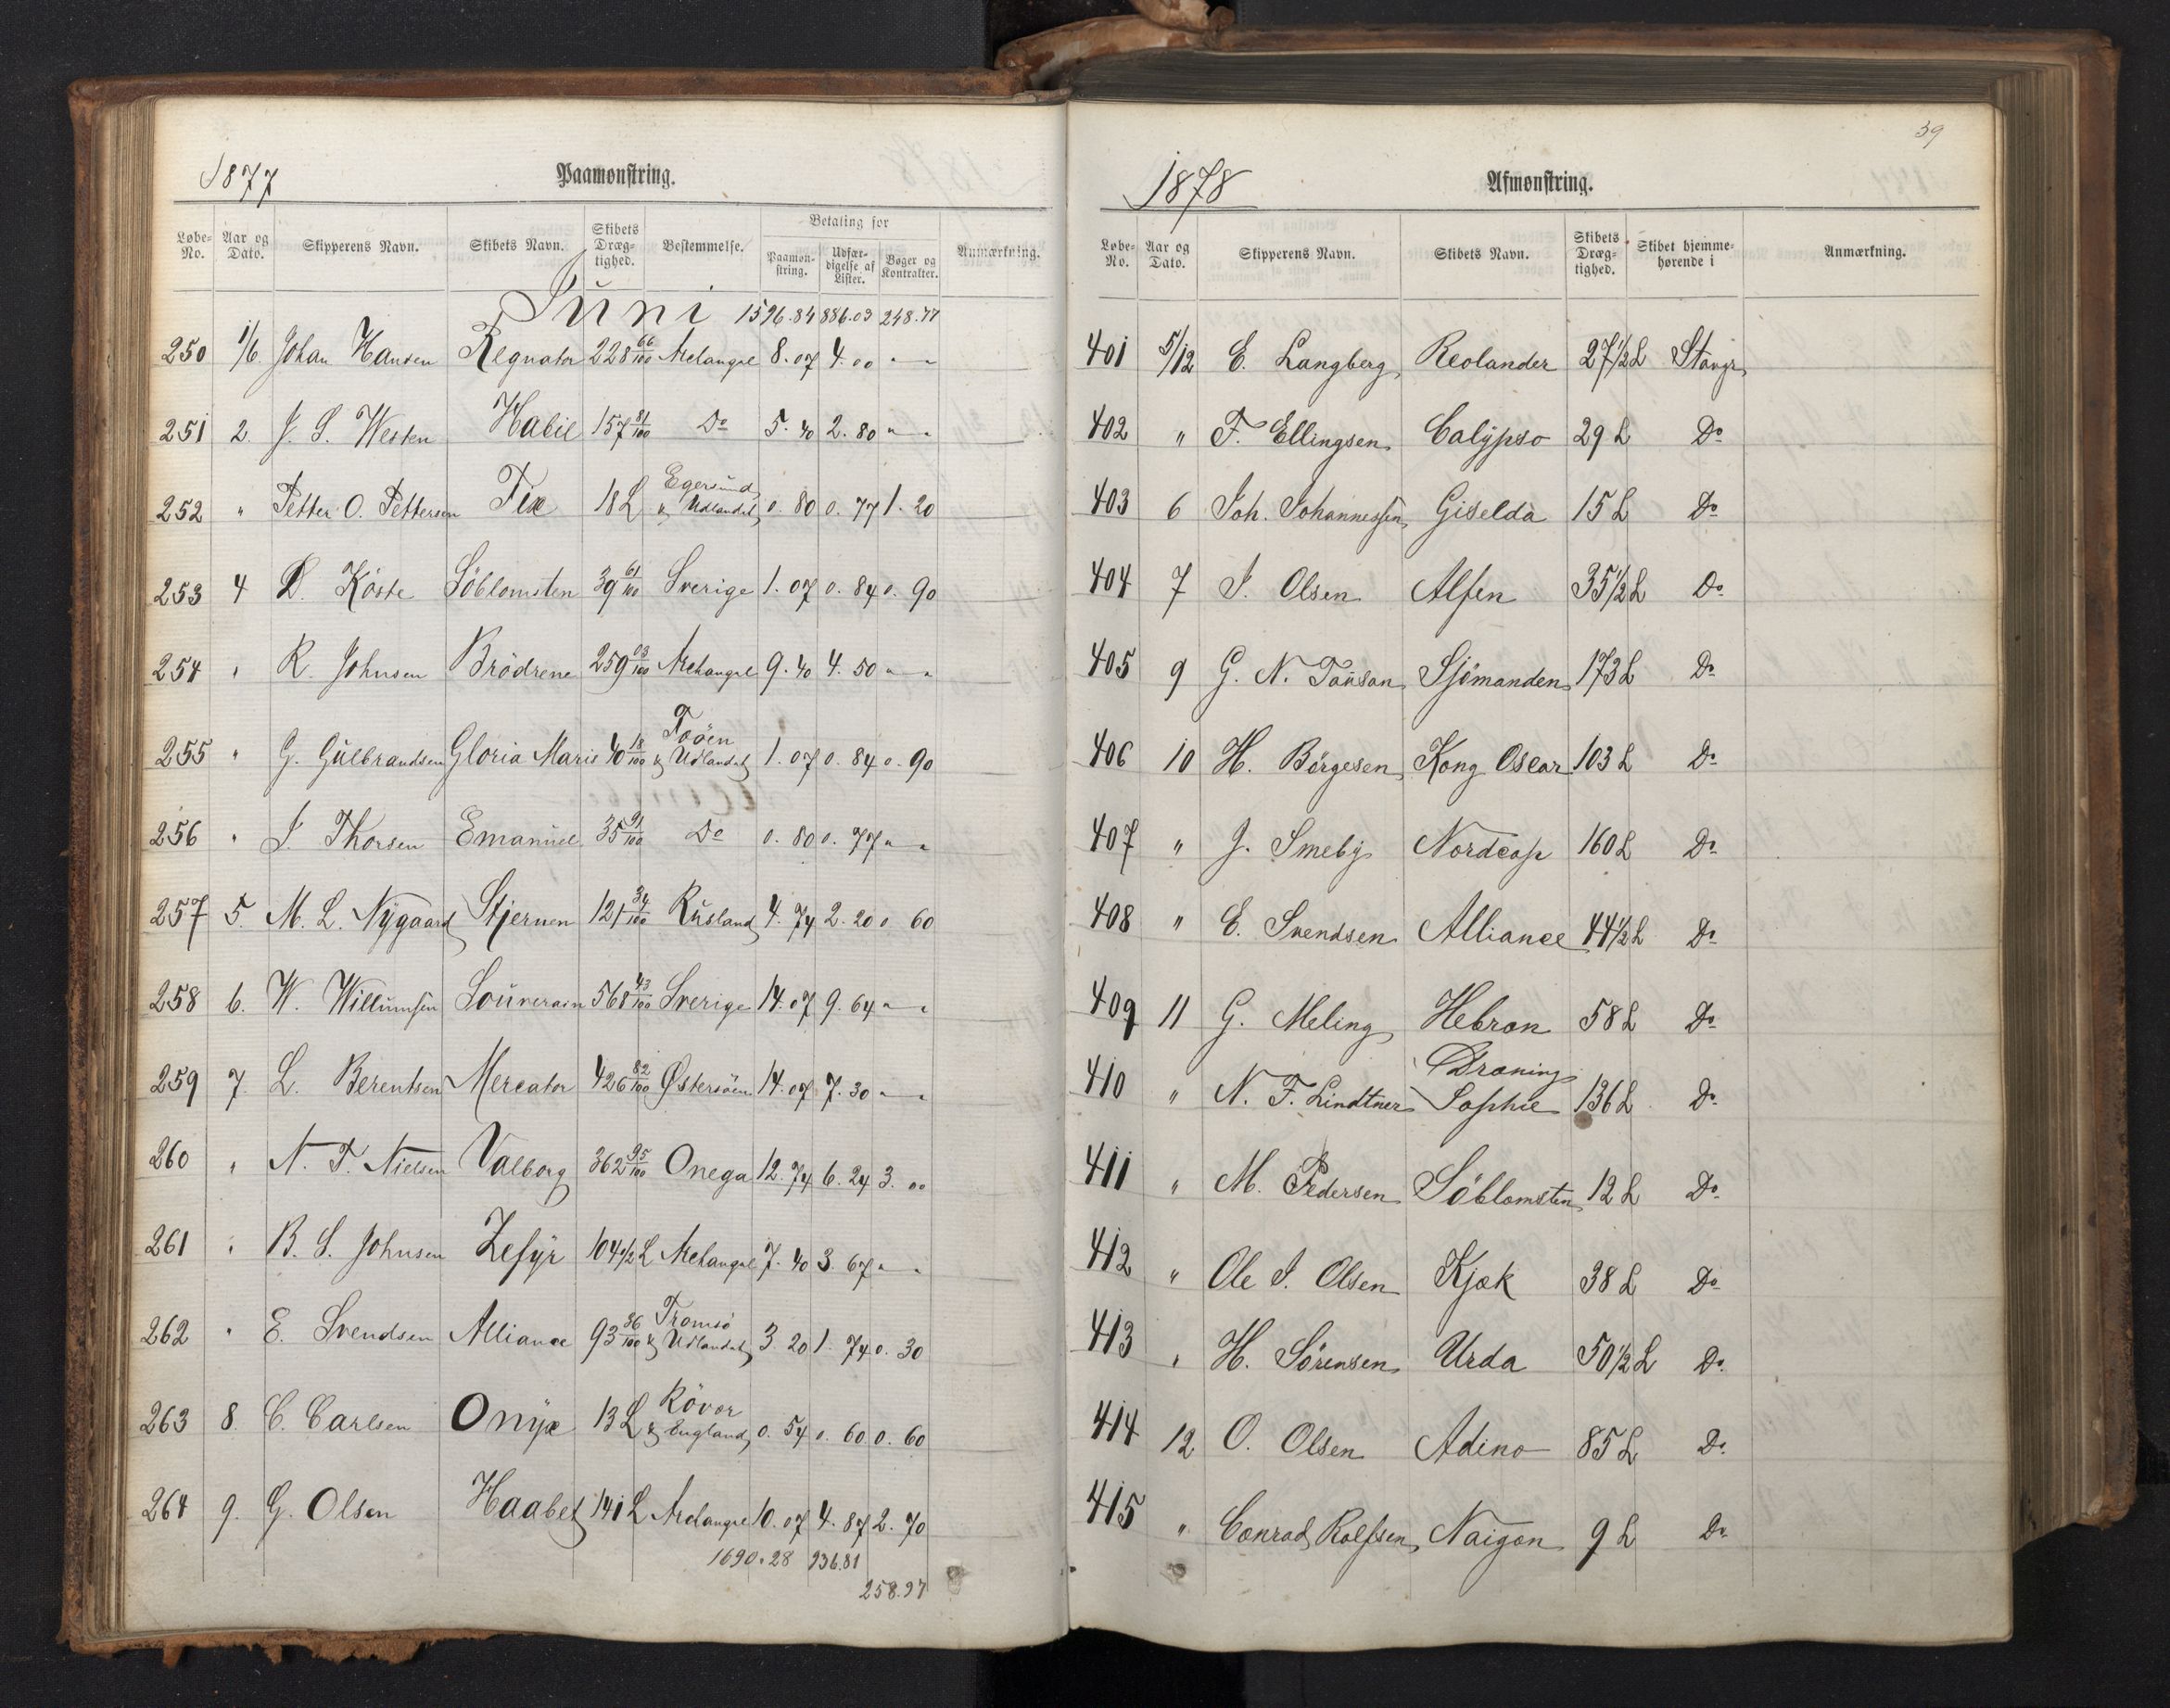 1877 Paamønstring.
Løbe-No. Aar og Dato. Skipperens Navn. Skibets Navn. Skibets Dræg-tighed. Bestemmelse. Betaling for Paamøn-string. Udfær-digelse af Lister. Bøger og Kontrakter. Anmærkning.
Juni 1596.84 886.03 248.77
250 1/6 Johan Hansen Regnator 228 66/100 Archangel 8.07 4.00 " "
251 2. J. S. Westen Habil 157 81/100 Do 5.40 2.80 " "
252 " Petter O. Pettersen Fix 18 L Egersund & Udlandet 0.80 0.77 1.20
253 4 D. Köste Söblomsten 39 61/100 Sverige 1.07 0.84 0.90
254 " R. Johnsen Brödrene 259 03/100 Archangel 9.40 4.50 " "
255 " G. Gulbrandsen Gloria Maris 40 18/100 & Udlandet 1.07 0.84 0.90
256 " J. Thorsen Emanuel 35 91/100 Do 0.80 0.77 " "
257 5. M. L. Nygaard Stjernen 121 34/100 Rusland 4.74 2.20 0.60
258 6. W. Willumsen Souverain 568 43/100 Sverige 14.07 9.64 " "
259 7. L. Berentsen Mercator 426 82/100 Østersöen 14.07 7.30 " "
260 " N. T. Nielsen Valborg 362 95/100 Onega 12.74 6.24 3.00
261 " B. S. Johnsen Zefyr 104 1/2 L Archangel 7.40 3.67 " "
262 " E. Svendsen Alliance 93 86/100 Tromsö & Udlandet 3 20 1.74 0.30
263 8. C. Carlsen Onyx 13 L Rövor & England 0.54 0.60 0.60
264 9. G. Olsen Haabet 141 L Archangel 10.07 4.87 2.70
1690.28 936.81
258.97
39
1878 Afmønstring.
Løbe-No. Aar og Dato. Skipperens Navn. Skibets Navn. Skibets Dræg-tighed. Skibet hjemme-hørende i Anmærkning.
401 5/12 E. Langberg Reolander 27 1/2 L Stavgr
402 " F. Ellingsen Calypso 29 L Do
403 6 Joh. Johannessen Giselda 15 L Do
404 7 J. Olsen Alfen 35 1/2 L Do
405 9 G. N. Tousan Sjömanden 173 L Do
406 10 H. Börgesen Kong Oscar 103 L Do
407 " J. Smeby Nordcap 160 L Do
408 " E. Svendsen Alliance 44 1/2 L Do
409 11 G. Meling Hebron 58 L Do
410 " N. F. Lindtner Droning Sophie 136 L Do
411 " M. Pedersen Söblomsten 12 L Do
412 " Ole J. Olsen Kjæk 38 L Do
413 " H. Sörensen Urda 50 1/2 L Do
414 12 O. Olsen Adino 85 L Do
415 " Conrad Rolfsen Naigon 9 L Do